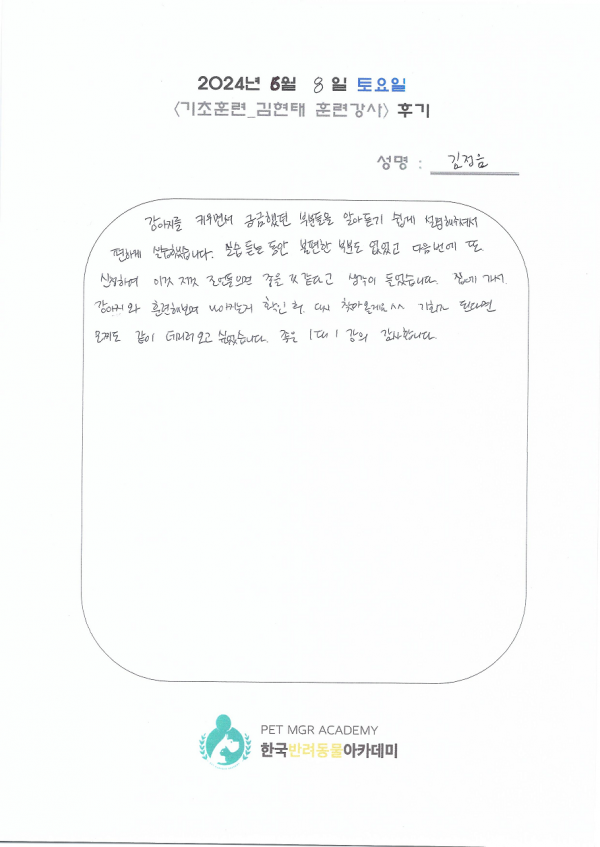 2024년 6월 8일 토요일
<기초훈련_김현태 훈련강사> 후기
성명 : 김정음
강아지를 키우면서 궁금했던 부분들을 알아듣기 쉽게 설명해주셔서
편하게 실습했습니다. 실습 듣는 동안 불편한 부분도 없었고 다음번에 또
신청하여 이것 저것 조언들으면 좋을 거 같다고 생각이 들었습니다. 집에 가서
강아지와 훈련해보며 나아지는거 확인 후, 다시 찾아올게요^^ 기회가 된다면
모찌도 같이 데리러오고 싶었습니다. 좋은 1대1 강의 감사합니다.
PET MGR ACADEMY
한국반려동물아카데미